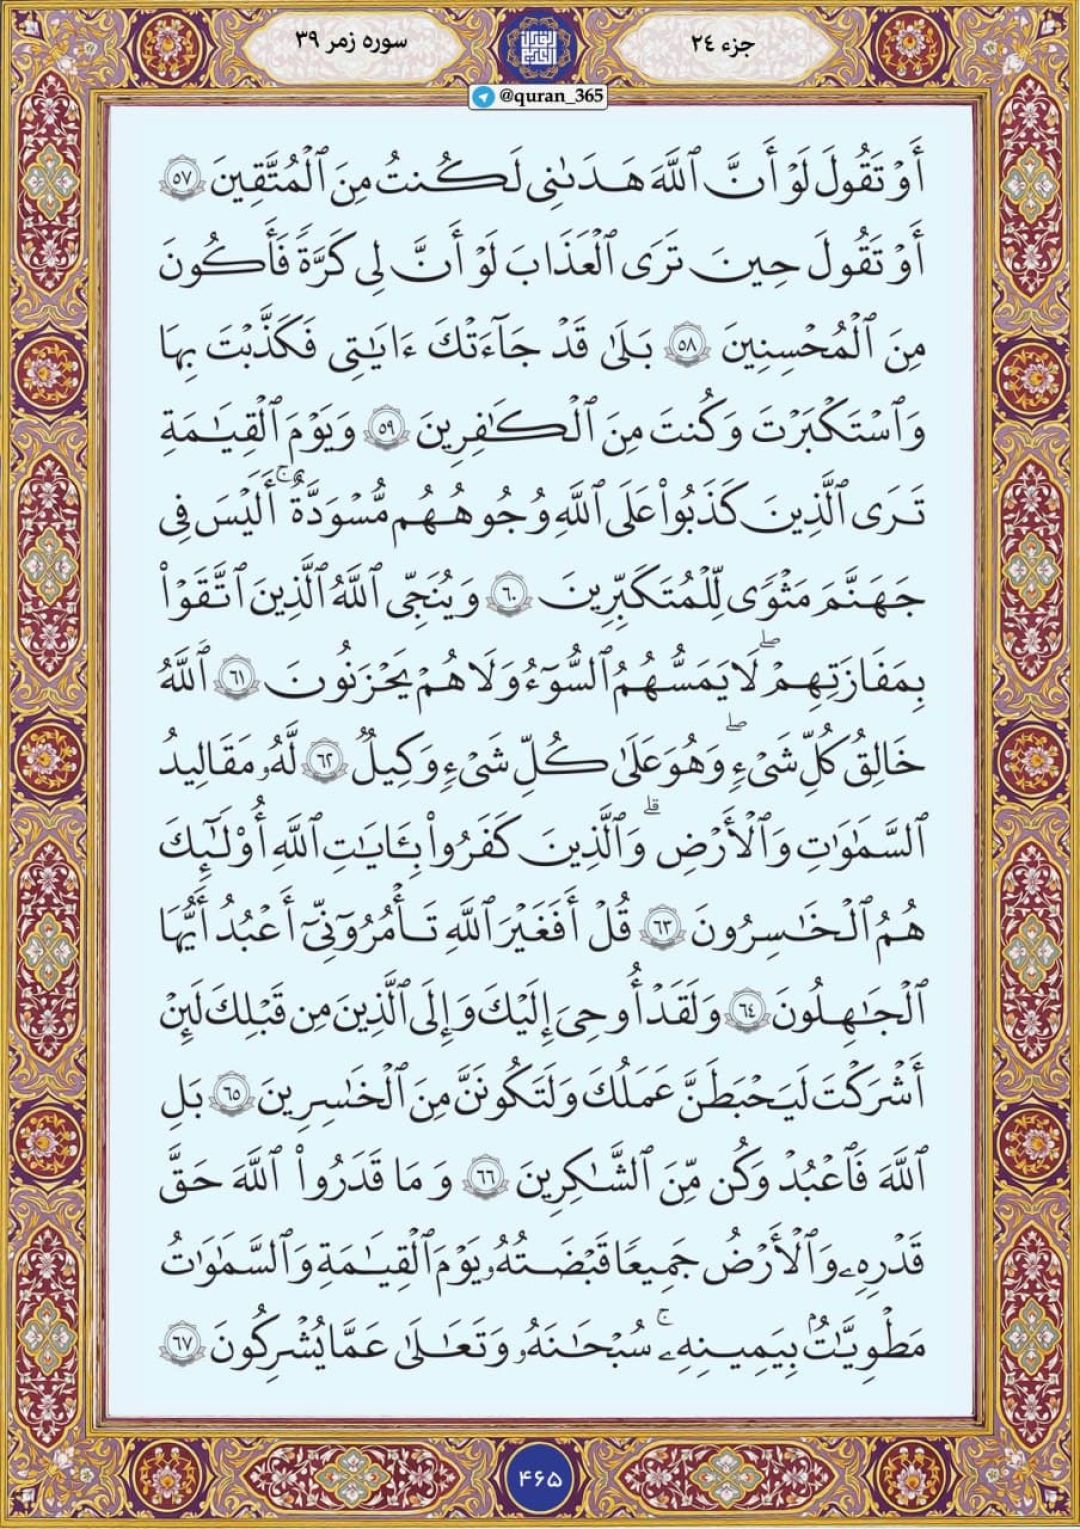 جزء ۲۴
سوره زمر ۳۹
@quran_365
أَوْ تَقُولَ لَوْ أَنَّ ٱللَّهَ هَدَىٰنِى لَكُنتُ مِنَ ٱلْمُتَّقِينَ ۝٥٧
أَوْ تَقُولَ حِينَ تَرَى ٱلْعَذَابَ لَوْ أَنَّ لِى كَرَّةً فَأَكُونَ
مِنَ ٱلْمُحْسِنِينَ ۝٥٨ بَلَىٰ قَدْ جَآءَتْكَ ءَايَٰتِى فَكَذَّبْتَ بِهَا
وَٱسْتَكْبَرْتَ وَكُنتَ مِنَ ٱلْكَٰفِرِينَ ۝٥٩ وَيَوْمَ ٱلْقِيَٰمَةِ
تَرَى ٱلَّذِينَ كَذَبُوا۟ عَلَى ٱللَّهِ وُجُوهُهُم مُّسْوَدَّةٌ ۚ أَلَيْسَ فِى
جَهَنَّمَ مَثْوًى لِّلْمُتَكَبِّرِينَ ۝٦٠ وَيُنَجِّى ٱللَّهُ ٱلَّذِينَ ٱتَّقَوْا۟
بِمَفَازَتِهِمْ ۖ لَا يَمَسُّهُمُ ٱلسُّوٓءُ وَلَا هُمْ يَحْزَنُونَ ۝٦١ ٱللَّهُ
خَالِقُ كُلِّ شَىْءٍ ۖ وَهُوَ عَلَىٰ كُلِّ شَىْءٍ وَكِيلٌ ۝٦٢ لَّهُۥ مَقَالِيدُ
ٱلسَّمَٰوَٰتِ وَٱلْأَرْضِ ۗ وَٱلَّذِينَ كَفَرُوا۟ بِـَٔايَٰتِ ٱللَّهِ أُو۟لَٰٓئِكَ
هُمُ ٱلْخَٰسِرُونَ ۝٦٣ قُلْ أَفَغَيْرَ ٱللَّهِ تَأْمُرُوٓنِّىٓ أَعْبُدُ أَيُّهَا
ٱلْجَٰهِلُونَ ۝٦٤ وَلَقَدْ أُوحِىَ إِلَيْكَ وَإِلَى ٱلَّذِينَ مِن قَبْلِكَ لَئِنْ
أَشْرَكْتَ لَيَحْبَطَنَّ عَمَلُكَ وَلَتَكُونَنَّ مِنَ ٱلْخَٰسِرِينَ ۝٦٥ بَلِ
ٱللَّهَ فَٱعْبُدْ وَكُن مِّنَ ٱلشَّٰكِرِينَ ۝٦٦ وَمَا قَدَرُوا۟ ٱللَّهَ حَقَّ
قَدْرِهِۦ وَٱلْأَرْضُ جَمِيعًا قَبْضَتُهُۥ يَوْمَ ٱلْقِيَٰمَةِ وَٱلسَّمَٰوَٰتُ
مَطْوِيَّٰتٌۢ بِيَمِينِهِۦ ۚ سُبْحَٰنَهُۥ وَتَعَٰلَىٰ عَمَّا يُشْرِكُونَ ۝٦٧
۴۶۵